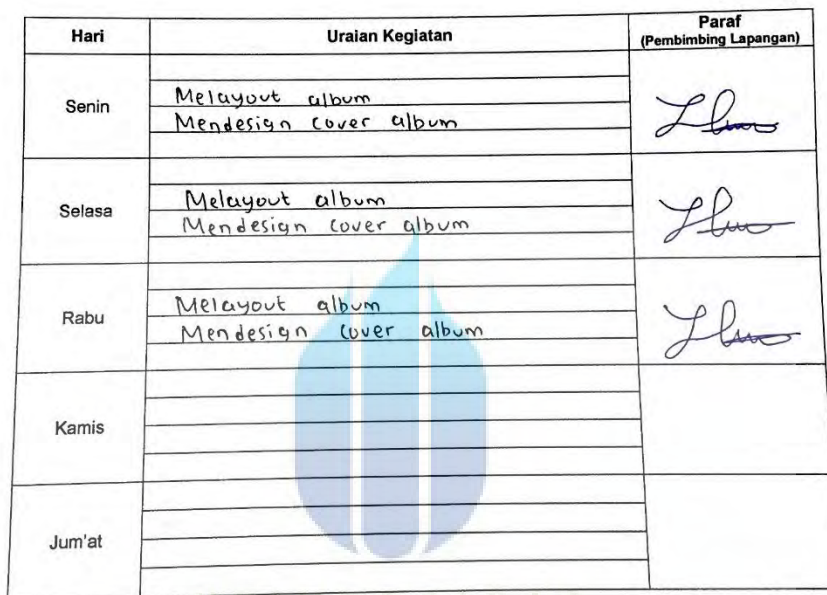 Hari Uraian Kegiatan Paraf
(Pembimbing Lapangan)
Senin
Melayout album
Mendesign cover album
Selasa
Melayout album
Mendesign cover album
Rabu
Melayout album
Mendesign cover album
Kamis
Jum'at